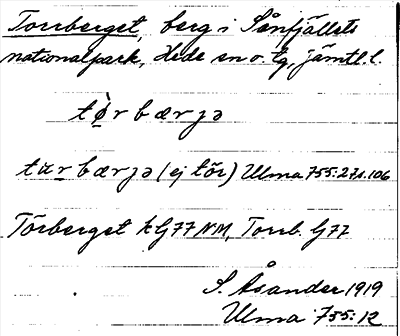 Torrberget, berg i Sånfjällets
nationalpark, Hede sn o. tg, jämtl. l.
tø̀r bærjə
tʉr bærjə (ej tör) Ulma 755:271.106
Törberget k G77 NM, Torrb. G77
S. Åsander 1919
Ulma 755:12